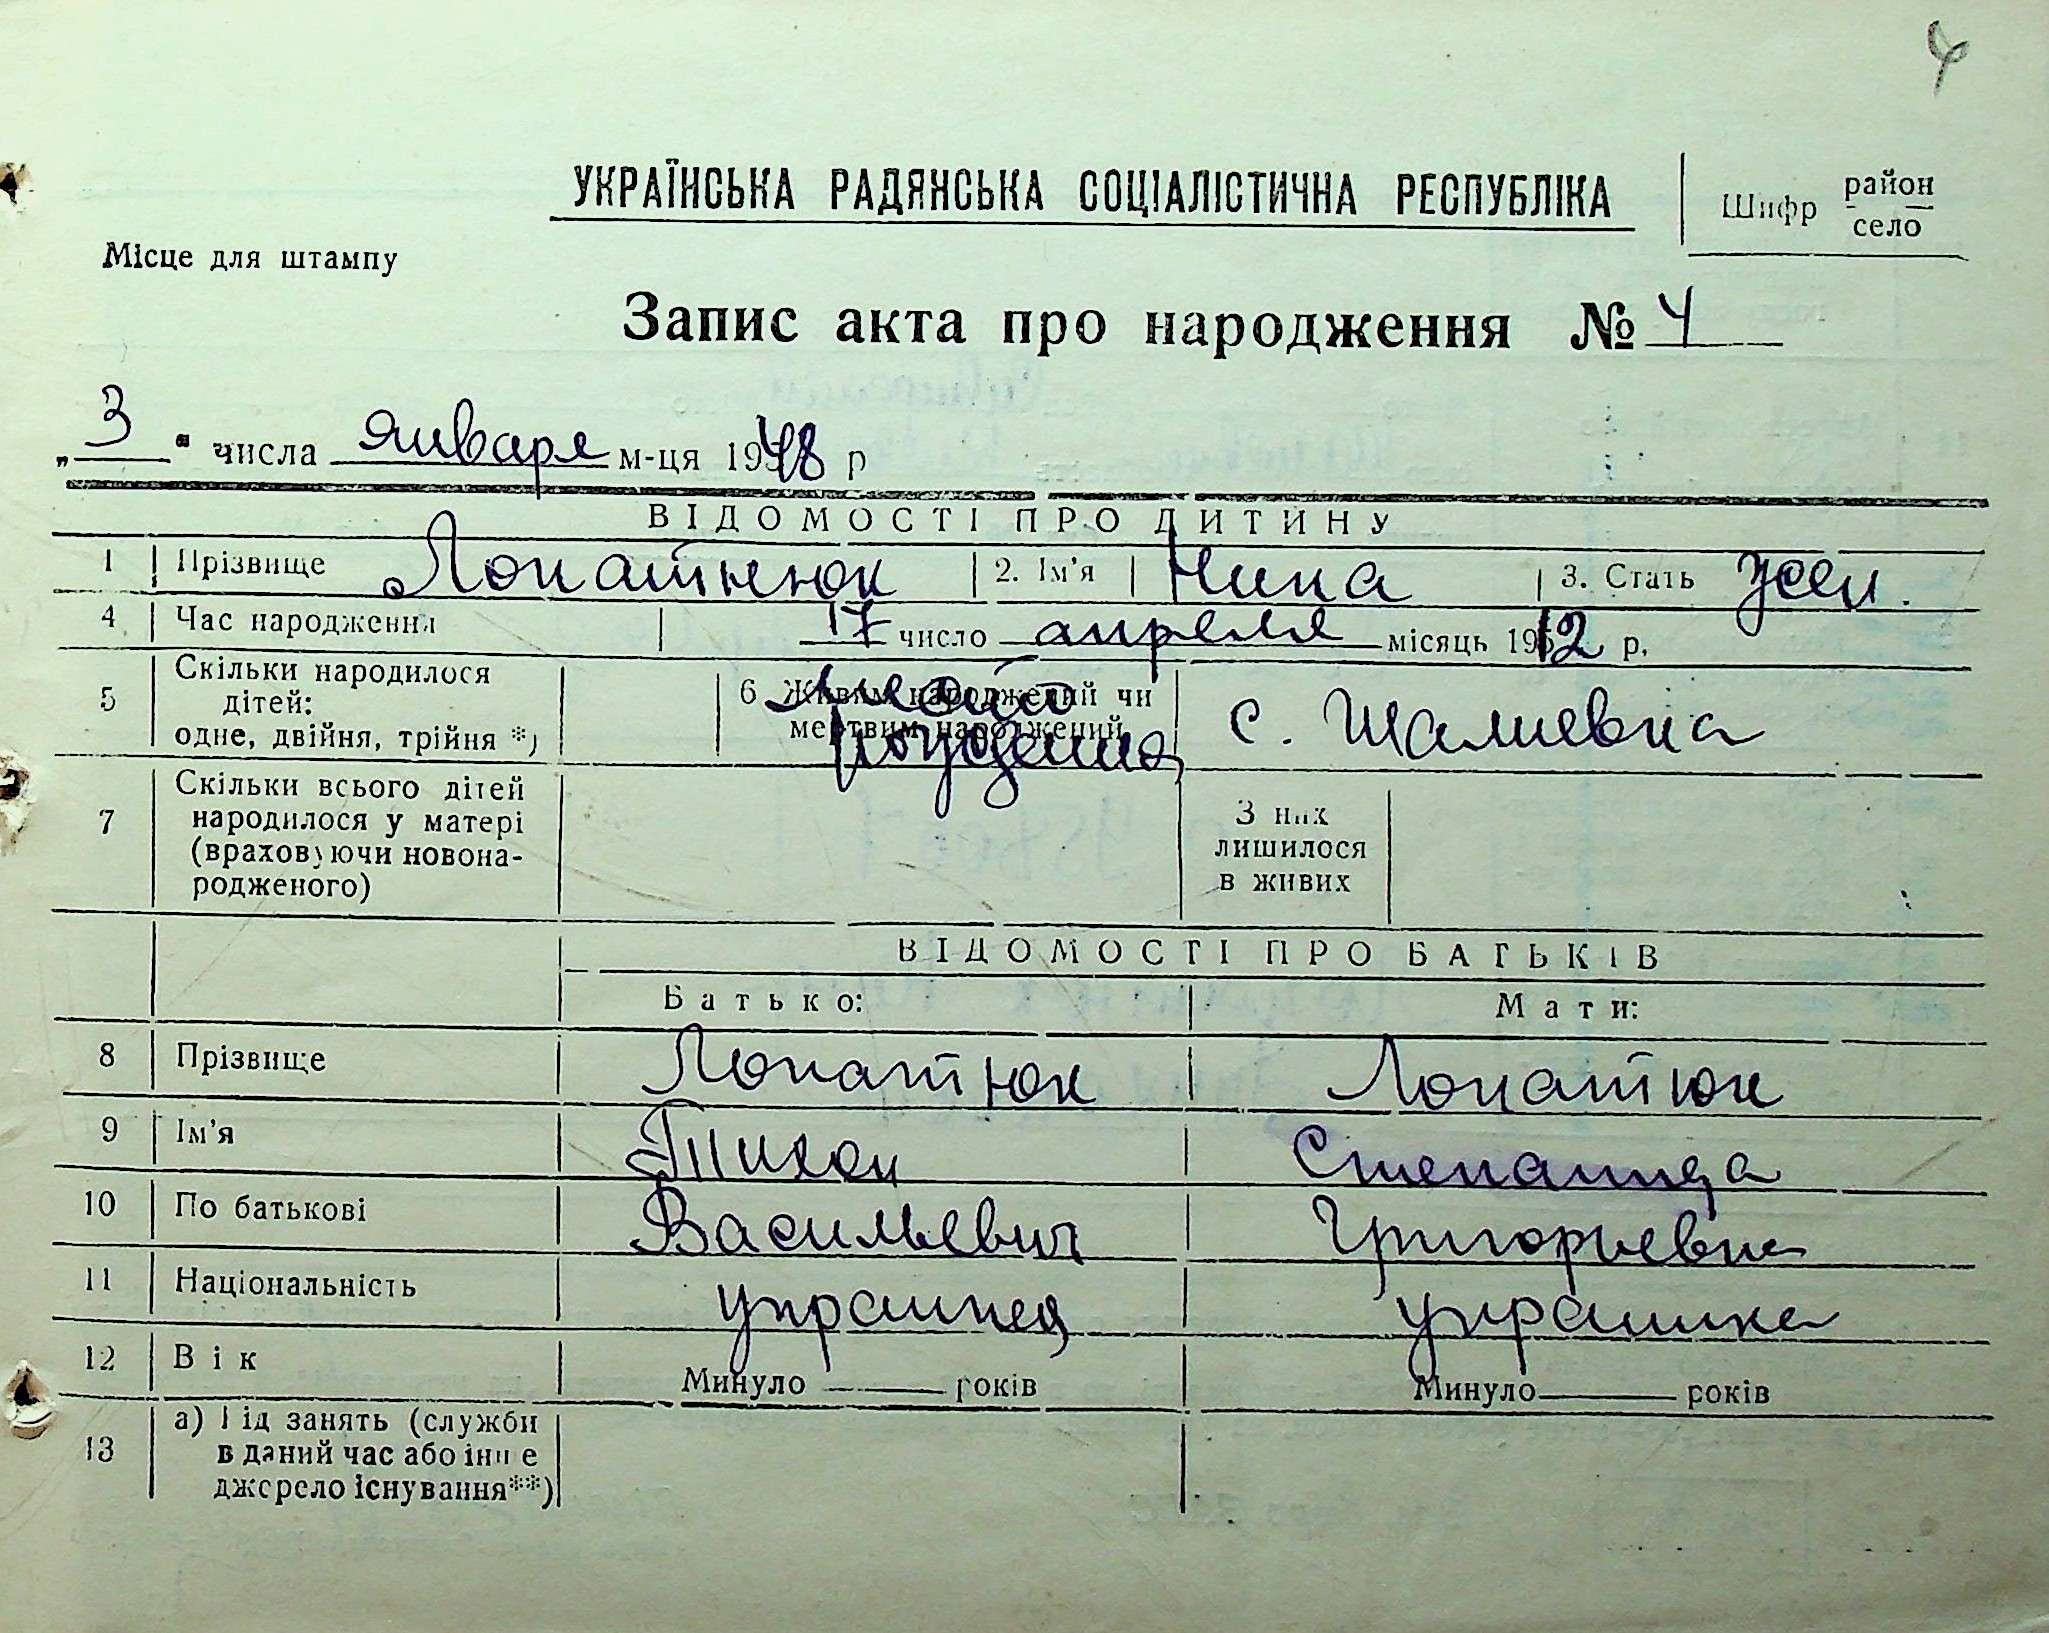 4
УКРАЇНСЬКА РАДЯНСЬКА СОЦІАЛІСТИЧНА РЕСПУБЛІКА
Шифр район село
Місце для штампу
Запис акта про народження № 4
„3" числа января м-ця 1948 р
ВІДОМОСТІ ПРО ДИТИНУ
1 Прізвище Лопатнюк 2. Ім'я Нина 3. Стать жен.
4 Час народження 17 число апреля місяць 1942 р.
5 Скільки народилося дітей: одне, двійня, трійня *)
6 Живим народжений чи мертвим народжений
место рождения
с. Шалиевка
7 Скільки всього дітей народилося у матері (враховуючи новонародженого)
З них лишилося в живих
ВІДОМОСТІ ПРО БАТЬКІВ
Батько: Мати:
8 Прізвище Лопатюк Лопатюк
9 Ім'я Тихон Степанида
10 По батькові Васильевич Григорьевна
11 Національність украинец украинка
12 Вік Минуло років Минуло років
13 а) Рід занять (служби в даний час або інше джерело існування**)